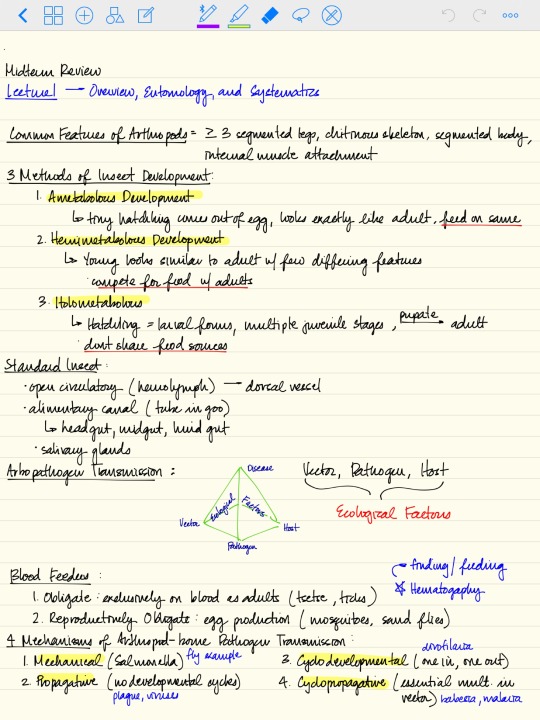 Midterm Review
Lecture 1 → Overview, Entomology, and Systematics
Common Features of Arthropods = ≥ 3 segmented legs, chitinous skeleton, segmented body,
internal muscle attachment
3 Methods of Insect Development:
1. Ametabolous Development
↳ tiny hatchling comes out of egg, looks exactly like adult, feed on same
2. Hemimetabolous Development
↳ Young looks similar to adult w/ few differing features
· compete for food w/ adults
3. Holometabolous
↳ Hatchling = larval forms, multiple juvenile stages, pupate → adult
· dont share food sources
Standard Insect:
· open circulatory (hemolymph) → dorsal vessel
· alimentary canal (tube in goo)
↳ headgut, midgut, hindgut
· salivary glands
Arbopathogen Transmission :
Disease
Vector
Ecological Factors
Host
Pathogen
Vector, Pathogen, Host
Ecological Factors
Blood Feeders :
finding/feeding
Hematogaphy
1. Obligate : exclusively on blood as adults (tsetse, ticks)
2. Reproductively Obligate : egg production (mosquitoes, sand flies)
4 Mechanisms of Arthropod-borne Pathogen Transmission :
1. Mechanical (Salmonella) fly example
2. Propagative (no developmental cycles)
plague, viruses
dirofilaria
3. Cyclodevelopmental (one in, one out)
4. Cyclopropagative (essential mult. in
vector) babesia, malaria